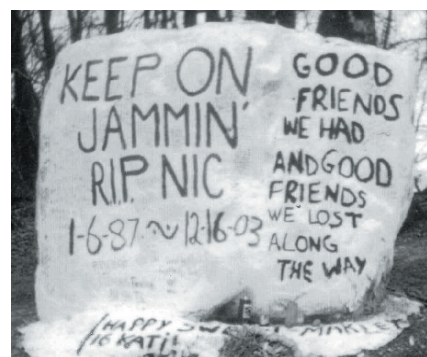 KEEP ON
JAMMIN'
R.I.P. NIC
1-6-87 ~ 12-16-03
GOOD
FRIENDS
WE HAD
AND GOOD
FRIENDS
WE'LOST
ALONG
THE WAY
HAPPY
16 KATI